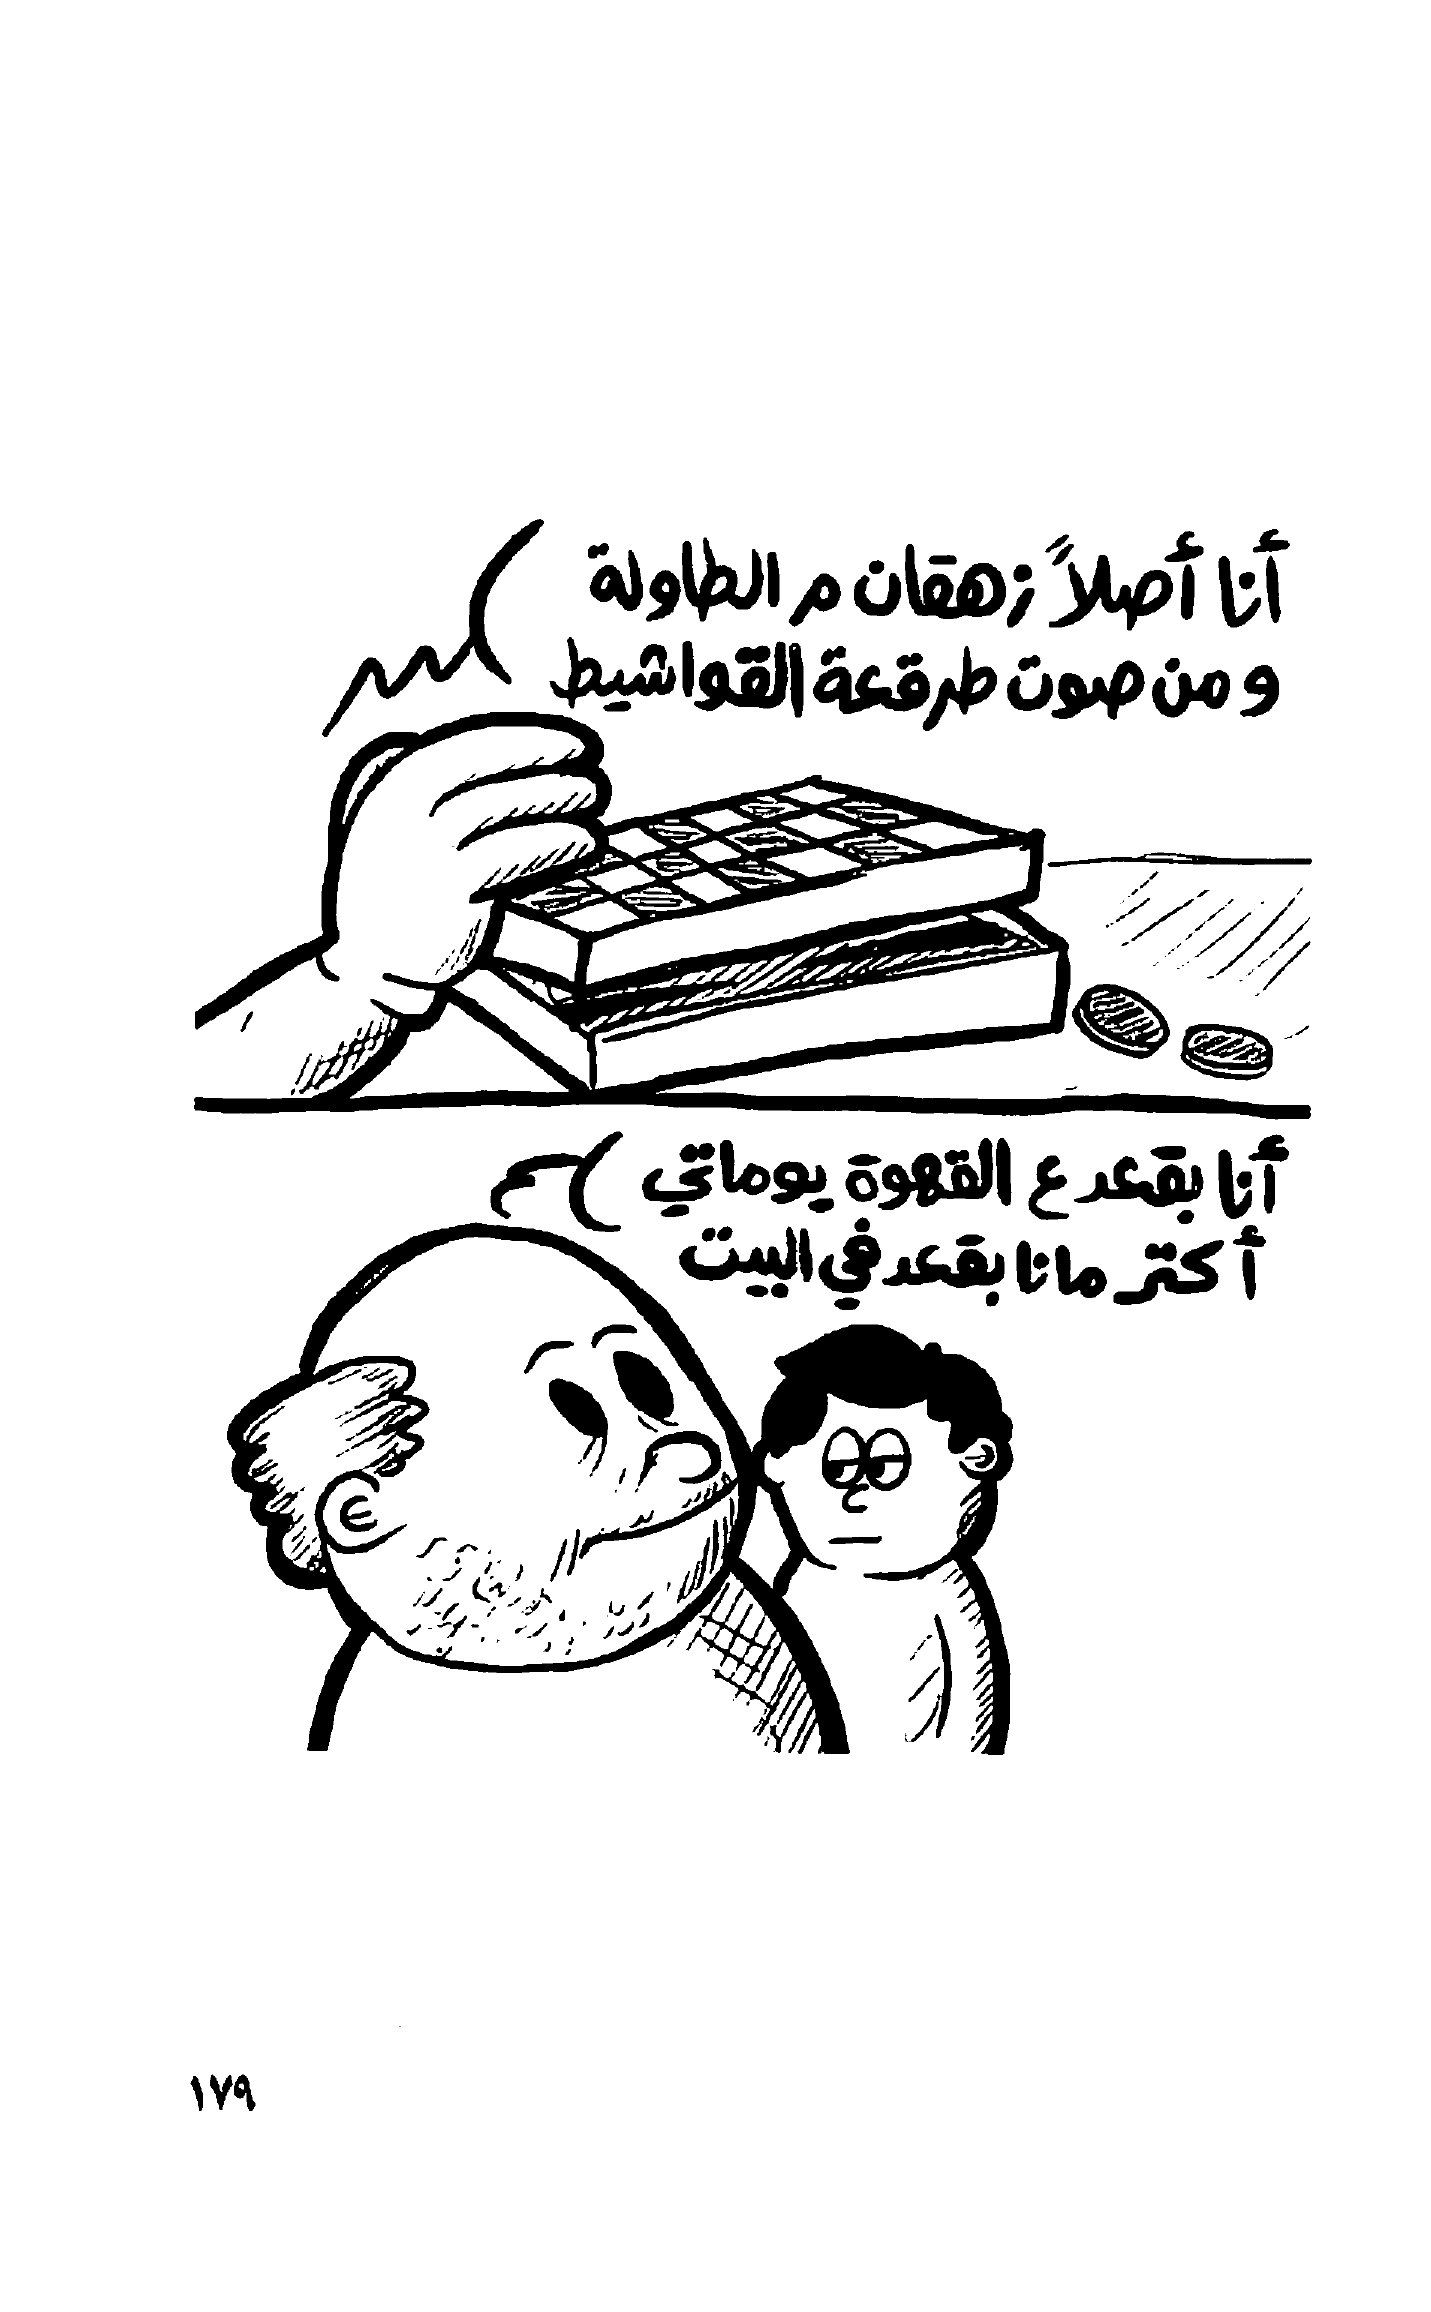 أنا أصلاً زهقان م الطاولة
ومن صوت طرقعة القواشيط
أنا بقعد ع القهوة يوماتي
أكتر مانا بقعد في البيت
١٧٩